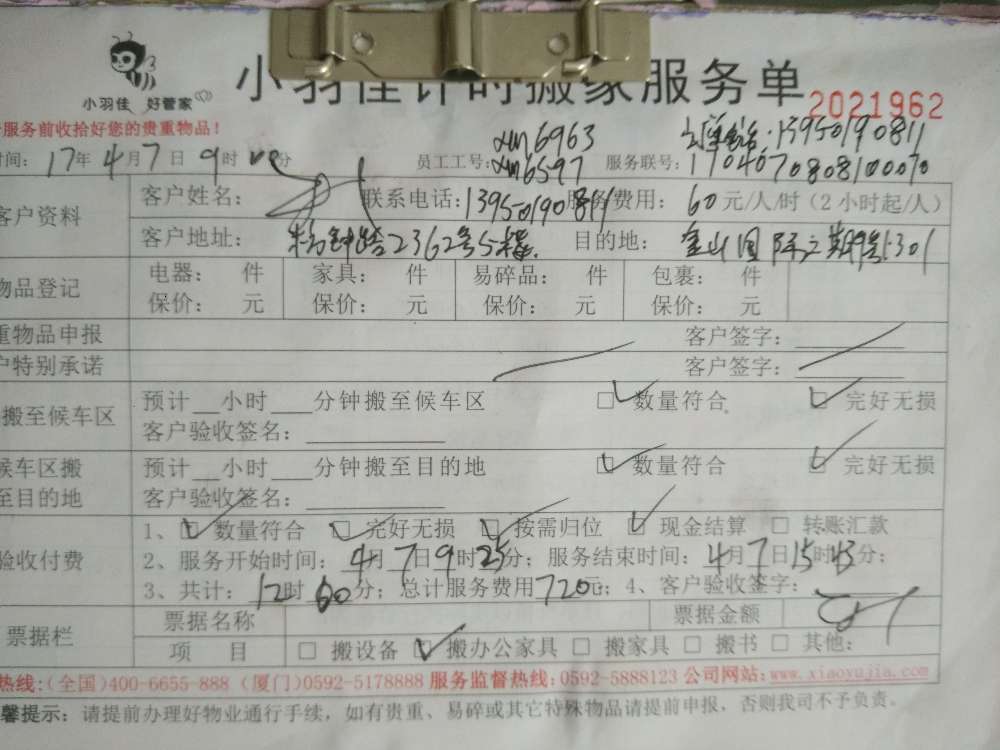 小羽佳 好管家
小羽佳计时搬家服务单
2021962
服务前收拾好您的贵重物品！
13950190811
时间：17年4月7日9时00分 员工工号：xm6963 xm6597 服务联号：1704070808100070
客户资料 客户姓名： 联系电话：13950190811 服务费用：60元/人/时（2小时起/人）
客户地址： 2362号5楼 目的地：金山国际 1301
物品登记 电器： 件 家具： 件 易碎品： 件 包裹： 件
保价： 元 保价： 元 保价： 元 保价： 元
重物品申报 客户签字：
户特别承诺 客户签字：
搬至候车区 预计__小时___分钟搬至候车区 □ 数量符合 □ 完好无损
客户验收签名：
候车区搬至目的地 预计__小时___分钟搬至目的地 □ 数量符合 □ 完好无损
客户验收签名：
验收付费 1、□ 数量符合 □ 完好无损 □ 按需归位 □ 现金结算 □ 转账汇款
2、服务开始时间：4月7日9时25分；服务结束时间：4月7日15时43分；
3、共计：12时60分；总计服务费用720元；4、客户验收签字：
票据栏 票据名称 票据金额
项 目 □ 搬设备 □ 搬办公家具 □ 搬家具 □ 搬书 □ 其他：
热线：(全国)400-6655-888 (厦门)0592-5178888 服务监督热线：0592-5888123 公司网站：www.xiaoyujia.com
馨提示：请提前办理好物业通行手续，如有贵重、易碎或其它特殊物品请提前申报，否则我司不予负责。